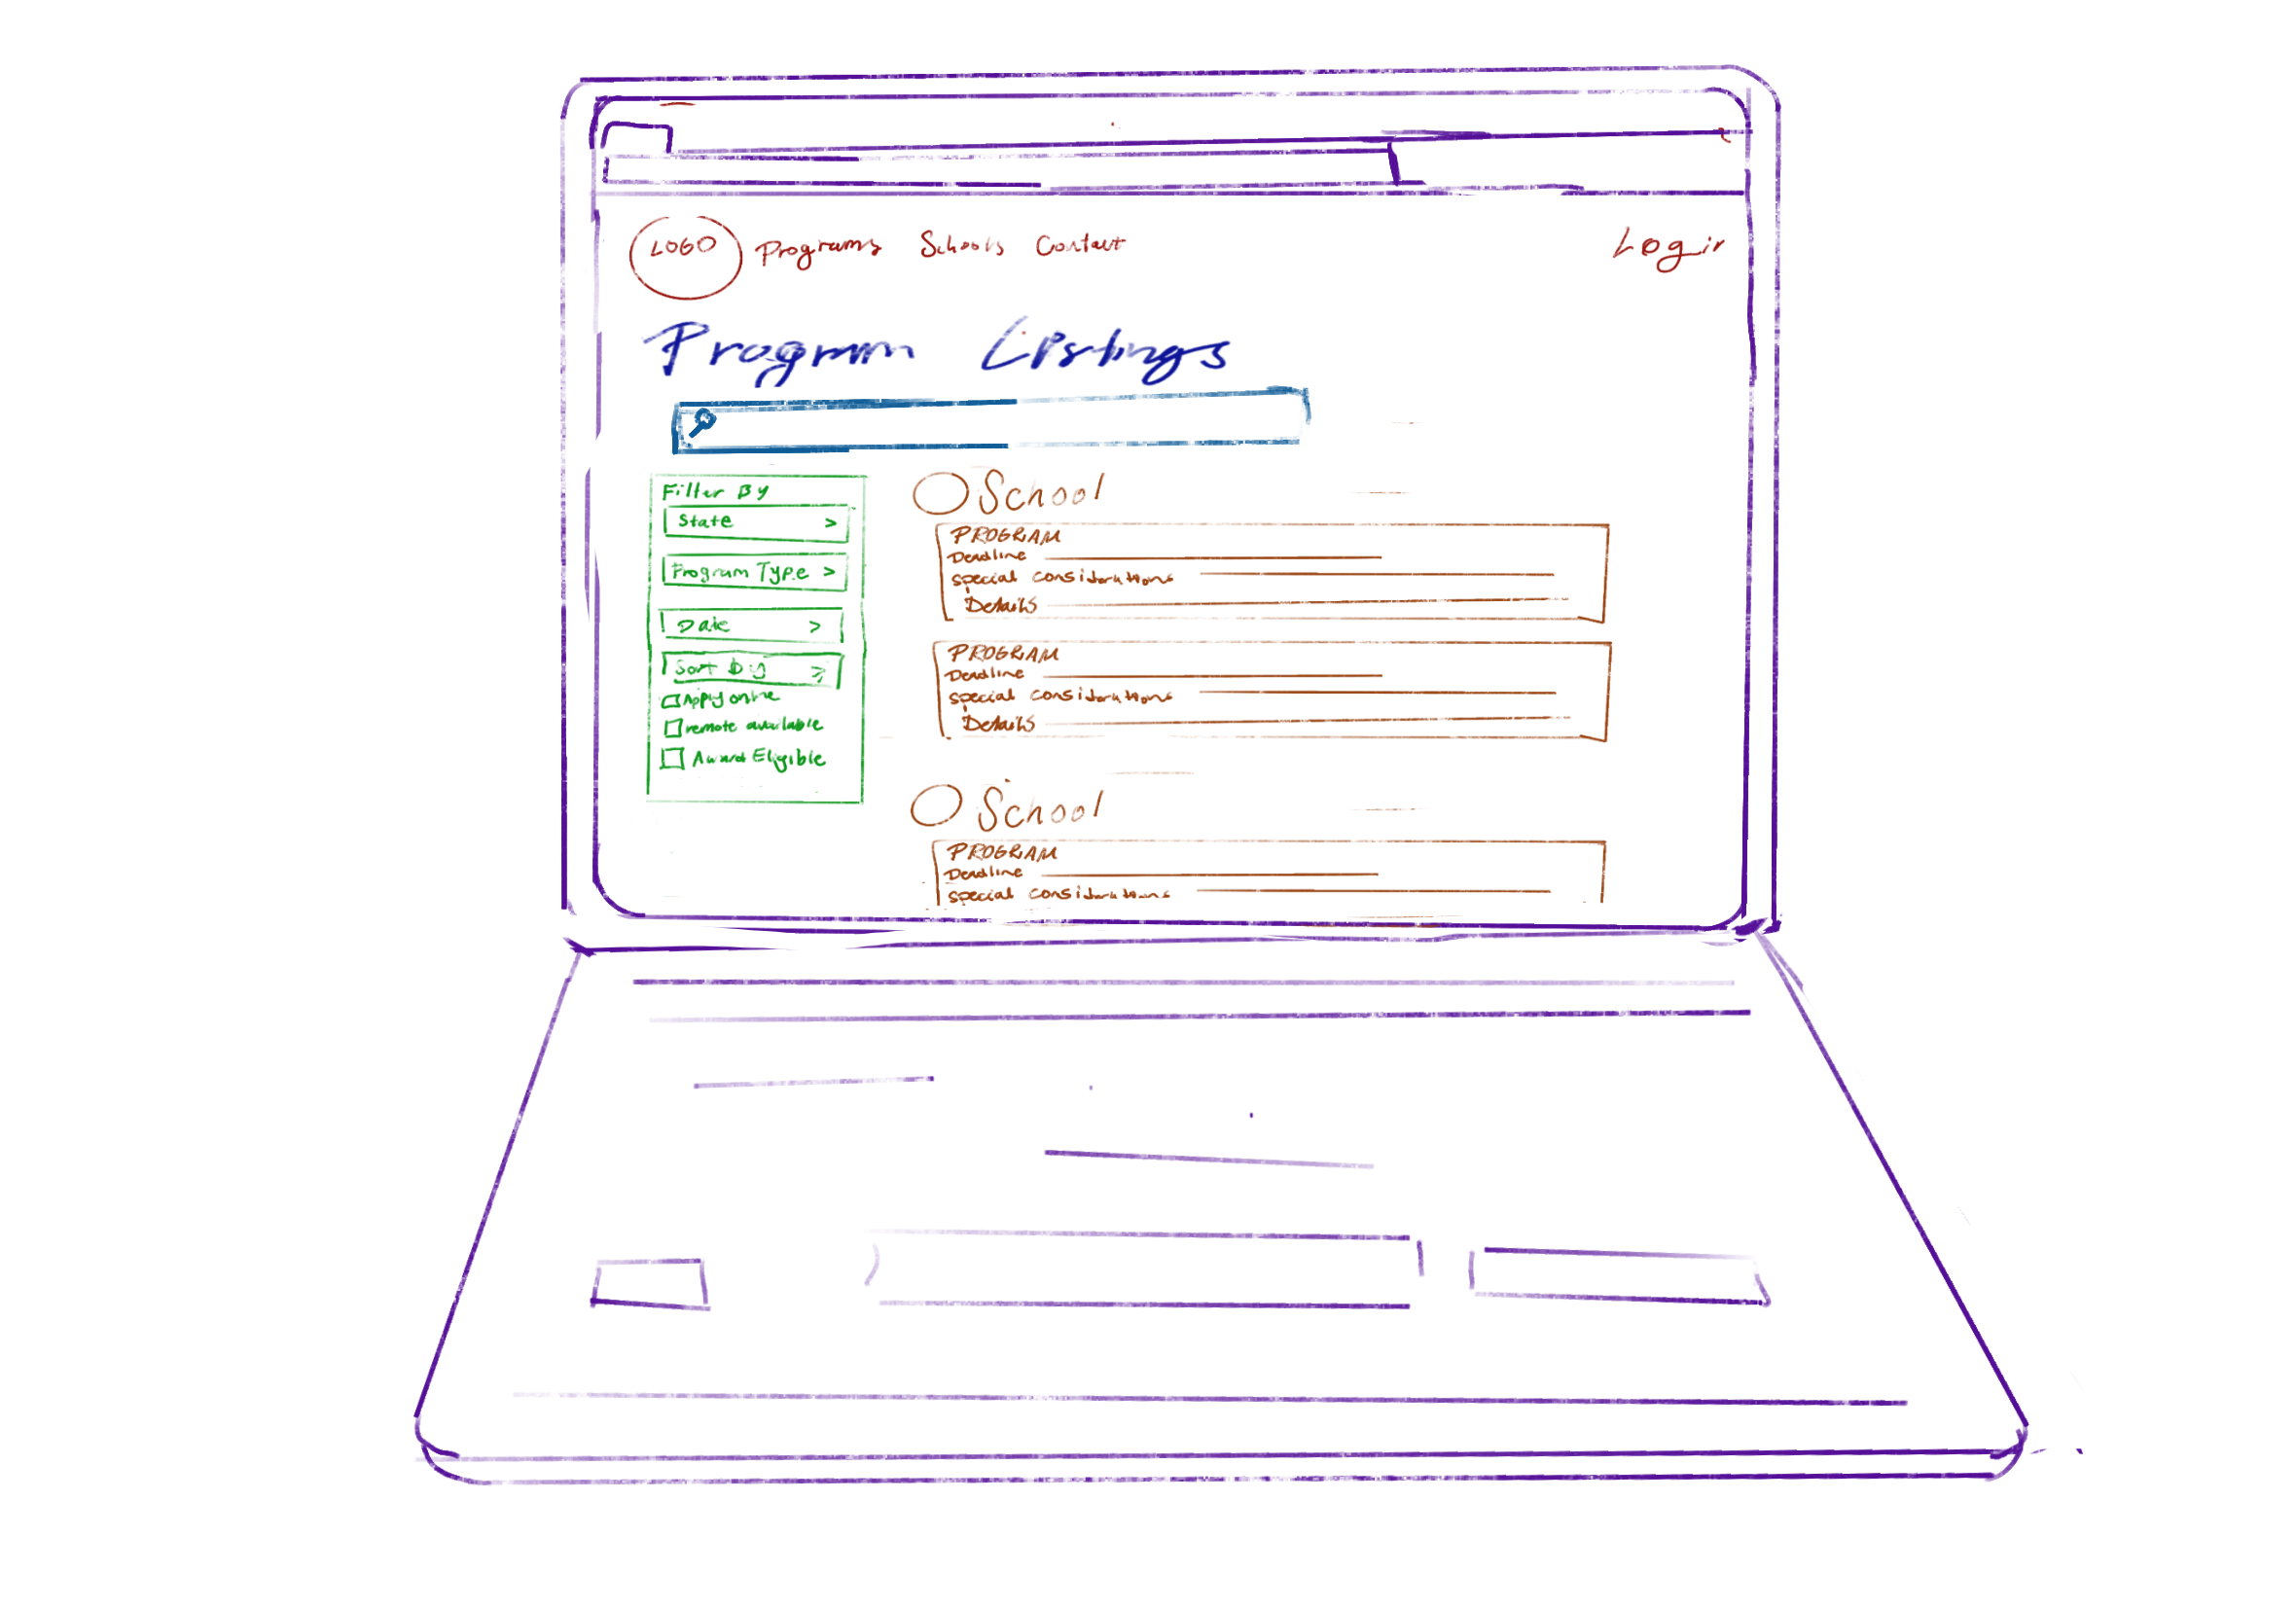 LOGO Programs Schools Contact Login
Program Listings
Filter By
State >
Program Type >
Date >
Sort By >
Apply online
remote available
Award Eligible
School
PROGRAM
Deadline
special considerations
Details
PROGRAM
Deadline
special considerations
Details
School
PROGRAM
Deadline
special considerations